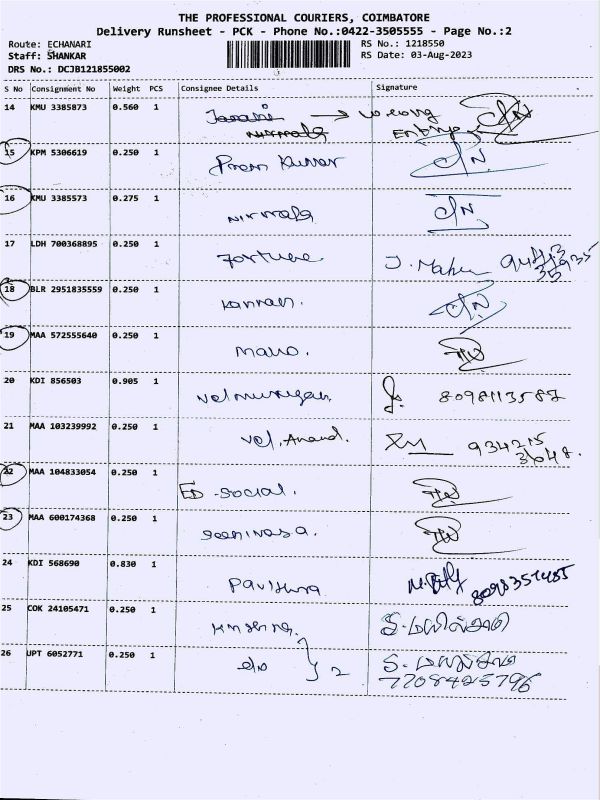 THE PROFESSIONAL COURIERS, COIMBATORE
Delivery Runsheet - PCK - Phone No.:0422-3505555 - Page No.:2
Route: ECHANARI RS No.: 1218550
Staff: SHANKAR RS Date: 03-Aug-2023
DRS No.: DCJB121855002
S No Consignment No Weight PCS Consignee Details Signature
14 KMU 3385873 0.560 1 → wrong
Nirmala Entry
15 KPM 5306619 0.250 1 Prem Kumar
16 KMU 3385573 0.275 1 Nirmala
17 LDH 700368895 0.250 1 Fortune
18 BLR 2951835559 0.250 1 Kannan.
19 MAA 572555640 0.250 1 Mano.
20 KDI 856503 0.905 1 Velmurugan 8098113587
21 MAA 103239992 0.250 1 Vel. Anand. 934215
31648.
22 MAA 104833054 0.250 1 ED - Social.
23 MAA 600174368 0.250 1 Seenivasa.
24 KDI 568690 0.830 1 Pavithra
25 COK 24105471 0.250 1
26 UPT 6052771 0.250 1 do } 2
7708425796